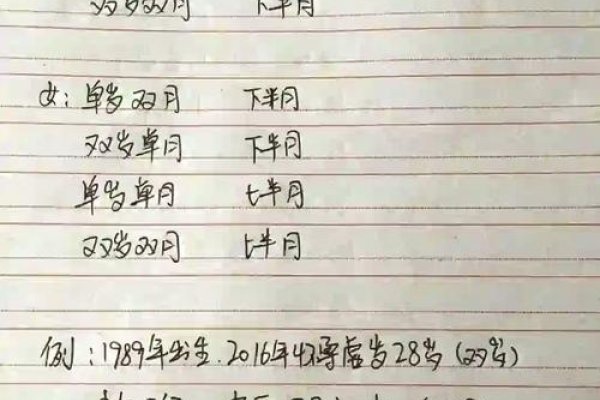 双岁双月 下半月
女：单岁双月 下半月
双岁单月 下半月
单岁单月 上半月
双岁双月 上半月
例：1989年出生.2016年怀孕虚岁28岁（双岁）